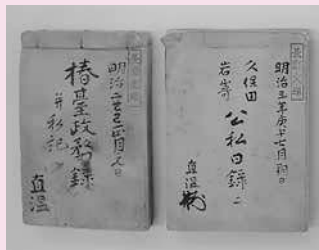 明治三年庚午七月朔日
久保田
岩嵜
公私日録 二
直温
明治二
椿臺政務録
并私記
直温